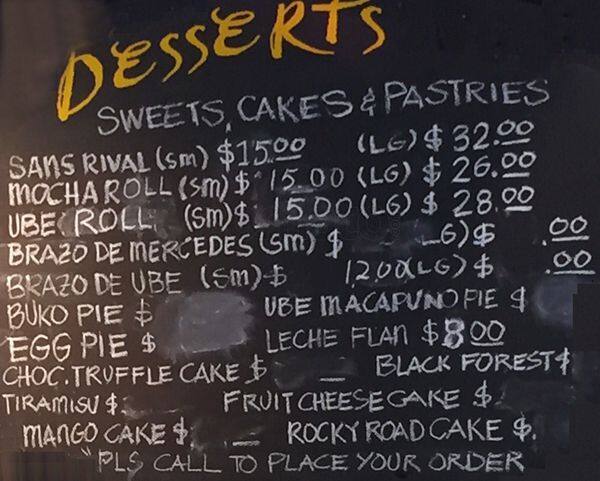 DESSERTS
SWEETS, CAKES & PASTRIES
SANS RIVAL (SM) $15.00 (LG) $ 32.00
MOCHA ROLL (SM) $ 15.00 (LG) $ 26.00
UBE ROLL (SM) $ 15.00 (LG) $ 28.00
BRAZO DE MERCEDES (SM) $ LG) $ .00
BRAZO DE UBE (SM) $ 12.00 (LG) $ .00
BUKO PIE $ UBE MACAPUNO PIE $
EGG PIE $ LECHE FLAN $8.00
CHOC. TRUFFLE CAKE $ BLACK FOREST $
TIRAMISU $. FRUIT CHEESECAKE $.
MANGO CAKE $. ROCKY ROAD CAKE $.
"PLS CALL TO PLACE YOUR ORDER